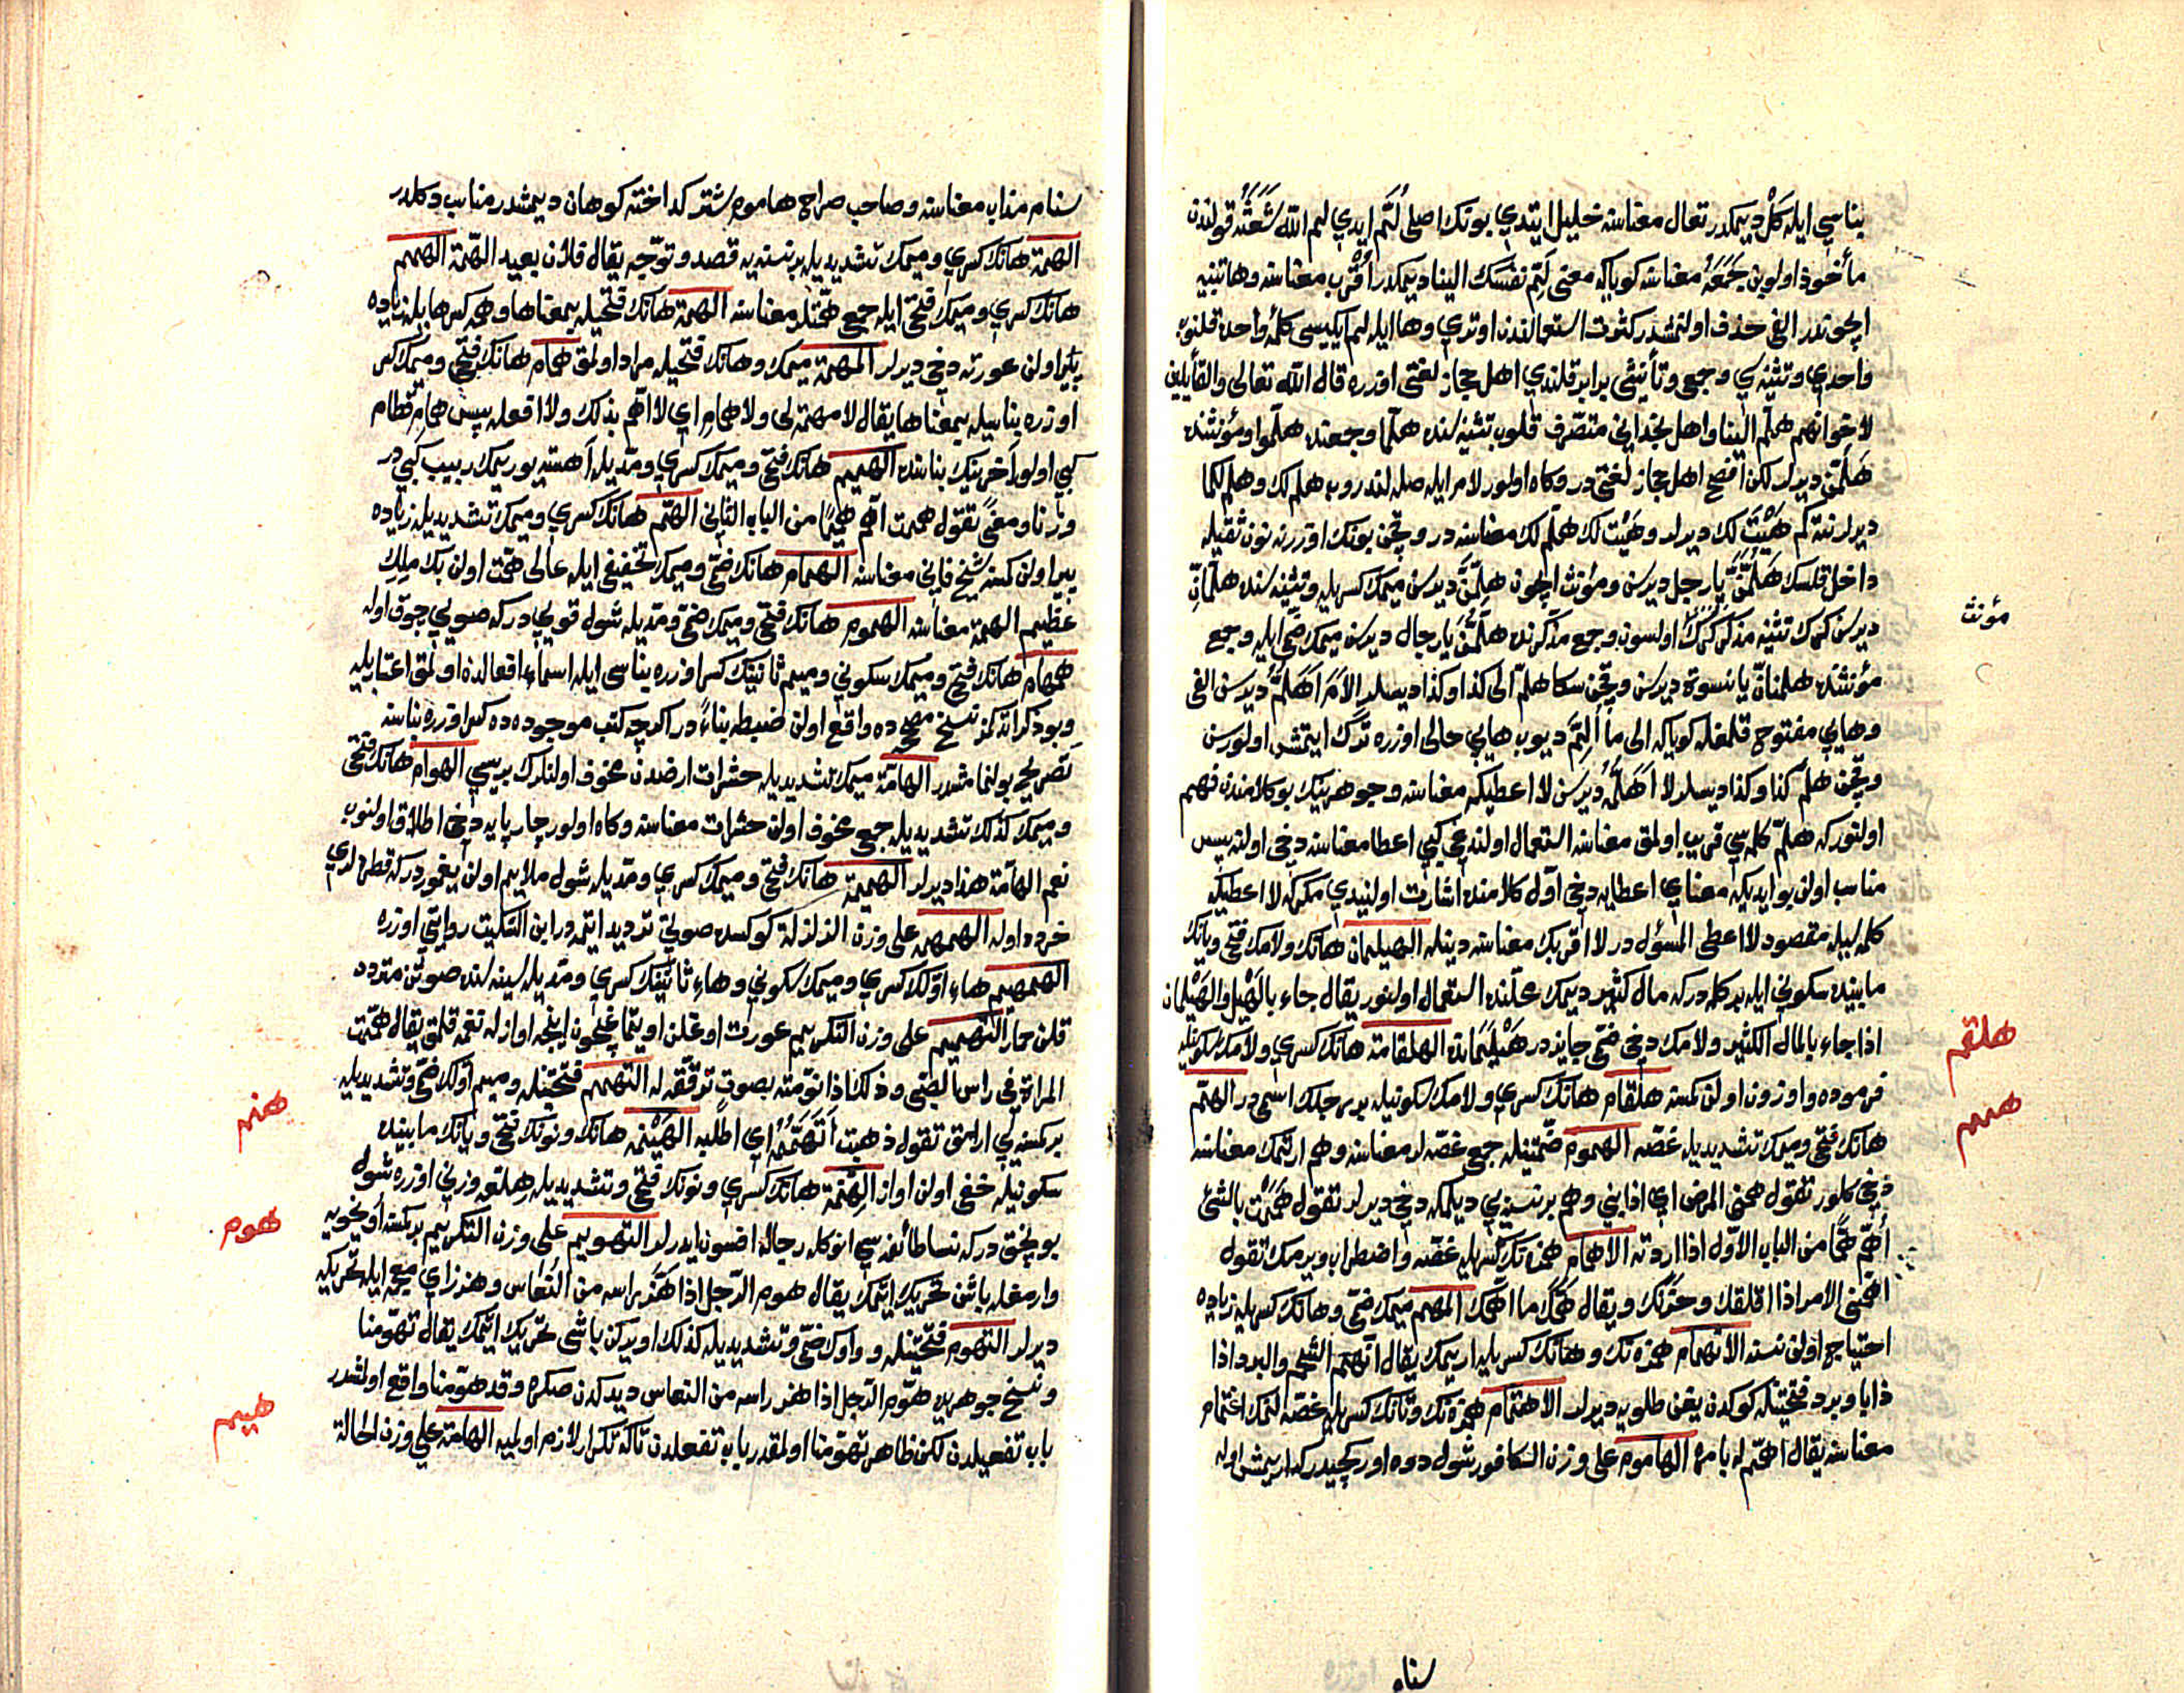 بناسي ايله كَلْ ديمكدر تعال معناسنه خليل ايتدي بونك اصلى لُمَّ ايدي لم الله شَعَثَهُ قولندن
مأخوذ اولوب جَمَعَهُ معناسنه كويا كه معنى لَمِّ نفسك الينا ديمكدر اُقْرُب معناسنه وها تنبيه
ايچوندر الفى حذف اولنمشدر كثرت استعمالندن اوتري وها ايله لم ايكيسى كلمۀ واحده قلنوب
واحدي وتثنيه ي وجمع وتأنيثى برابر قلندي اهل حجاز لغتى اوزره قال الله تعالى والقائلين
لاخوانهم هلم الينا واهل نجد انى متصرف قلوب تثنيه سنده هلما وجمعنده هلموا ومؤنثنده
هَلْمُمْنَ ديرلر لكن افصح اهل حجاز لغتى در وكاه اولور لام ايله صله لندروب هلم لك وهلم لكما
ديرلر نته كم هَيْتَ لك ديرلر وهَيْت لك هلم لك معناسنه در وقچن بونك اوزرينه نون ثقيله
داخل قلسك هَلُمَّنَّ يا رجل ديرسن ومؤنث ايچون هلمِّنَّ ديرسن ميمك كسريله وتثنيه سنده هلمانِّ
ديرسن كرك تثنيه مذكر كرك اولسون وجمع مذكرنده هلمُّنَّ يا رجال ديرسن ميمك ضمى ايله وجمع
مؤنثنده هلمنانّ يا نسوة ديرسن وقچن سكا هلم الى كذا وكذا ديسلر الامَ اَهَلُمُّ ديرسن الفى
وهايي مفتوح قلمغله كويا كه الى ما اَلُمُّ ديوب هايي حالى اوزره ترك ايتمش اولورسن
وقچن هلم كذا وكذا ديسلر لا اَهَلُمُّهُ ديرسن لا اعطيكه معناسنه وجوهرينك بو كلامندن فهم
اولنور كه هلمّ كلمه سي قريب اولمق معناسنه استعمال اولنديغى كبي اعطا معناسنه دخى اولنه پس
مناسب اولن بو ايديكه معناي اعطايه دخى اول كلامنده اشارت اولنيدي مكر كه لا اعطيكه
كلمه سيله مقصود لا اعطى المسؤل در لا اقربك معناسنه دينله الهيلمان هانك ولامك فتحى ويانك
مابينده سكونى ايله بر كلمه در كه مال كثير ديمك محلنده استعمال اولنور يقال جاء بالهَيْل والهَيْلمان
اذا جاء بالمال الكثير ولامك دخى ضمى جايزدر هَيْلُمَان الهلقامة هانك كسري ولامك سكونيله
فرموده واوزون اولن كمسنه هلقام هانك كسري ولامك سكونيله بر رجلك اسمى در الهمّ
هانك فتحى وميمك تشديديله غصّه الهموم ضمتينله جمع غصّه لر معناسنه وهم ارتمك معناسنه
دخى كلور تقول همنى المرض اي اذابني وهم بر نسنه يي ديلمكه دخى ديرلر تقول همَمْت بالشئ
أهُمّ همًّا من الباب الاوّل اذا اردته الاهمام همزه نك كسريله غصّه واضطراب ويرمك تقول
اهمنى الامر اذا اقلقك وحزنك ويقال همُّك ما اهمّك المهم ميمك ضمى وهانك كسريله زياده
احتياج اولن نسنه الانهمام همزه نك وهانك كسريله اريمك يقال انهمّ الشحم والبرد اذا
ذابا وبرد فتحتينله كوكدن يغن طلويه ديرلر الاهتمام همزه نك وتانك كسريله غصّه لنمك اغتمام
معناسنه يقال اهتمّ له بامره الهاموم على وزن الكافور شول دوه اوركجيدر كه اريمش اوله
مؤنث
هلقم
همم
سنام
سنام مذاب معناسنه وصاحب صراح هاموم شتر كداخته كوهان ديمشدر مناسب دكلدر
الهمّة هانك كسري وميمك تشديديله بر نسنه يه قصد وتوجّه يقال فلان بعيد الهمّة الهمم
هانك كسري وميمك فتحى ايله جمع همّتلر معناسنه الهمة هانك فتحيله بمعناها وهم كسرها ايله زياده
پير اولن عورته دخى ديرلر المهمّة ميمك وهانك فتحيله مراد اولمق همام هانك فتحى وميمك كسر
اوزره بناسيله بمعناها يقال لا مهمّة لى ولا همامِ اي لا اهمّ بذلك ولا افعله پس همامِ قطام
كبي اولور آخرينك بناسنده الهميم هانك فتحى وميمك كسري ومدّيله آهسته يوريمك دبيب كبي در
وزنا ومعنىً تقول هممت اهمّ هميمًا من الباب الثانى الهِمّ هانك كسري وميمك تشديديله زياده
پير اولن كمسنه شيخ فانى معناسنه الهمام هانك ضمى وميمك تخفيفى ايله عالى همّت اولن بك ملك
عظيم الهمة معناسنه الهموم هانك فتحى وميمك ضمى ومدّيله شول قويي در كه صويي چوق اوله
همهام هانك فتحى وميمك سكونى وميم ثانينك كسر اوزره بناسى ايله اسماء افعالدن اولمق اعتباريله
وبو ذكر اتدكمز نسخ مصححه ده واقع اولن ضبطه بناءً در اكرچه كتب موجوده ده كسر اوزره بناسنه
تصريح بولنمامشدر الهامّة ميمك تشديديله حشرات ارضدن مخوف اولنلرك بريسي الهوام هانك فتحى
وميمك كذلك تشديديله جمع مخوف اولن حشرات معناسنه وكاه اولور چارپايه دخى اطلاق اولنوب
نعم الهامّة هذا ديرلر الهميمة هانك فتحى وميمك كسري ومدّيله شول ملايم اولن يغموردر كه قطره لري
خرده اوله الهمهمة على وزن الزلزلة كوكسده صوتى ترديد ايتمه در ابن السكيت روايتى اوزره
الهمهيم هاء اوّلك كسري وميمك سكونى وهاء ثانينك كسري ومدّيله سينه سنده صوتن متردد
قلن حمار التهميم على وزن التكريم عورت اوغلن اويتمق ايچون اينجه اوازله نغمه قلمق يقال همّمت
المراة في راس الصبى وذلك اذا نوّمته بصوت ترقّقه له التهمم فتحتينله وميم اوّلك ضمى وتشديديله
بر كمسنه يي ارامق تقول ذهبت أَتَهَمَّمُهُ اي اطلبه الهَيْنمة هانك ونونك فتحى ويانك مابينده
سكونيله خفى اولن اواز الهِنّمة هانك كسري ونونك فتحى وتشديديله هِلّعه وزنى اوزره شول
بونجق در كه نسا طائفه سي انوكله رجاله افسون ايدرلر التهويم على وزن التكريم بر كمسنه اويخويه
وارمغله باشن تحريك ايتمك يقال هوم الرّجل اذا هَزّ براسه من النّعاس وهز زاي معجمه ايله تحريكه
ديرلر التهوم فتحتينله و واوك ضمى وتشديديله كذلك اويركن باشى تحريك ايتمك يقال تهوّمنا
ونسخ جوهريده هوّم الرّجل اذا هز راسه من النعاس ديدكدن صكره وقد هوّمنا واقع اولشدر
باب تفعيلدن لكن ظاهر تهوّمنا اولمقدر باب تفعلدن تاكه تكرار لازم اولميه الهامة على وزن الحالة
هنم
هوم
هيم